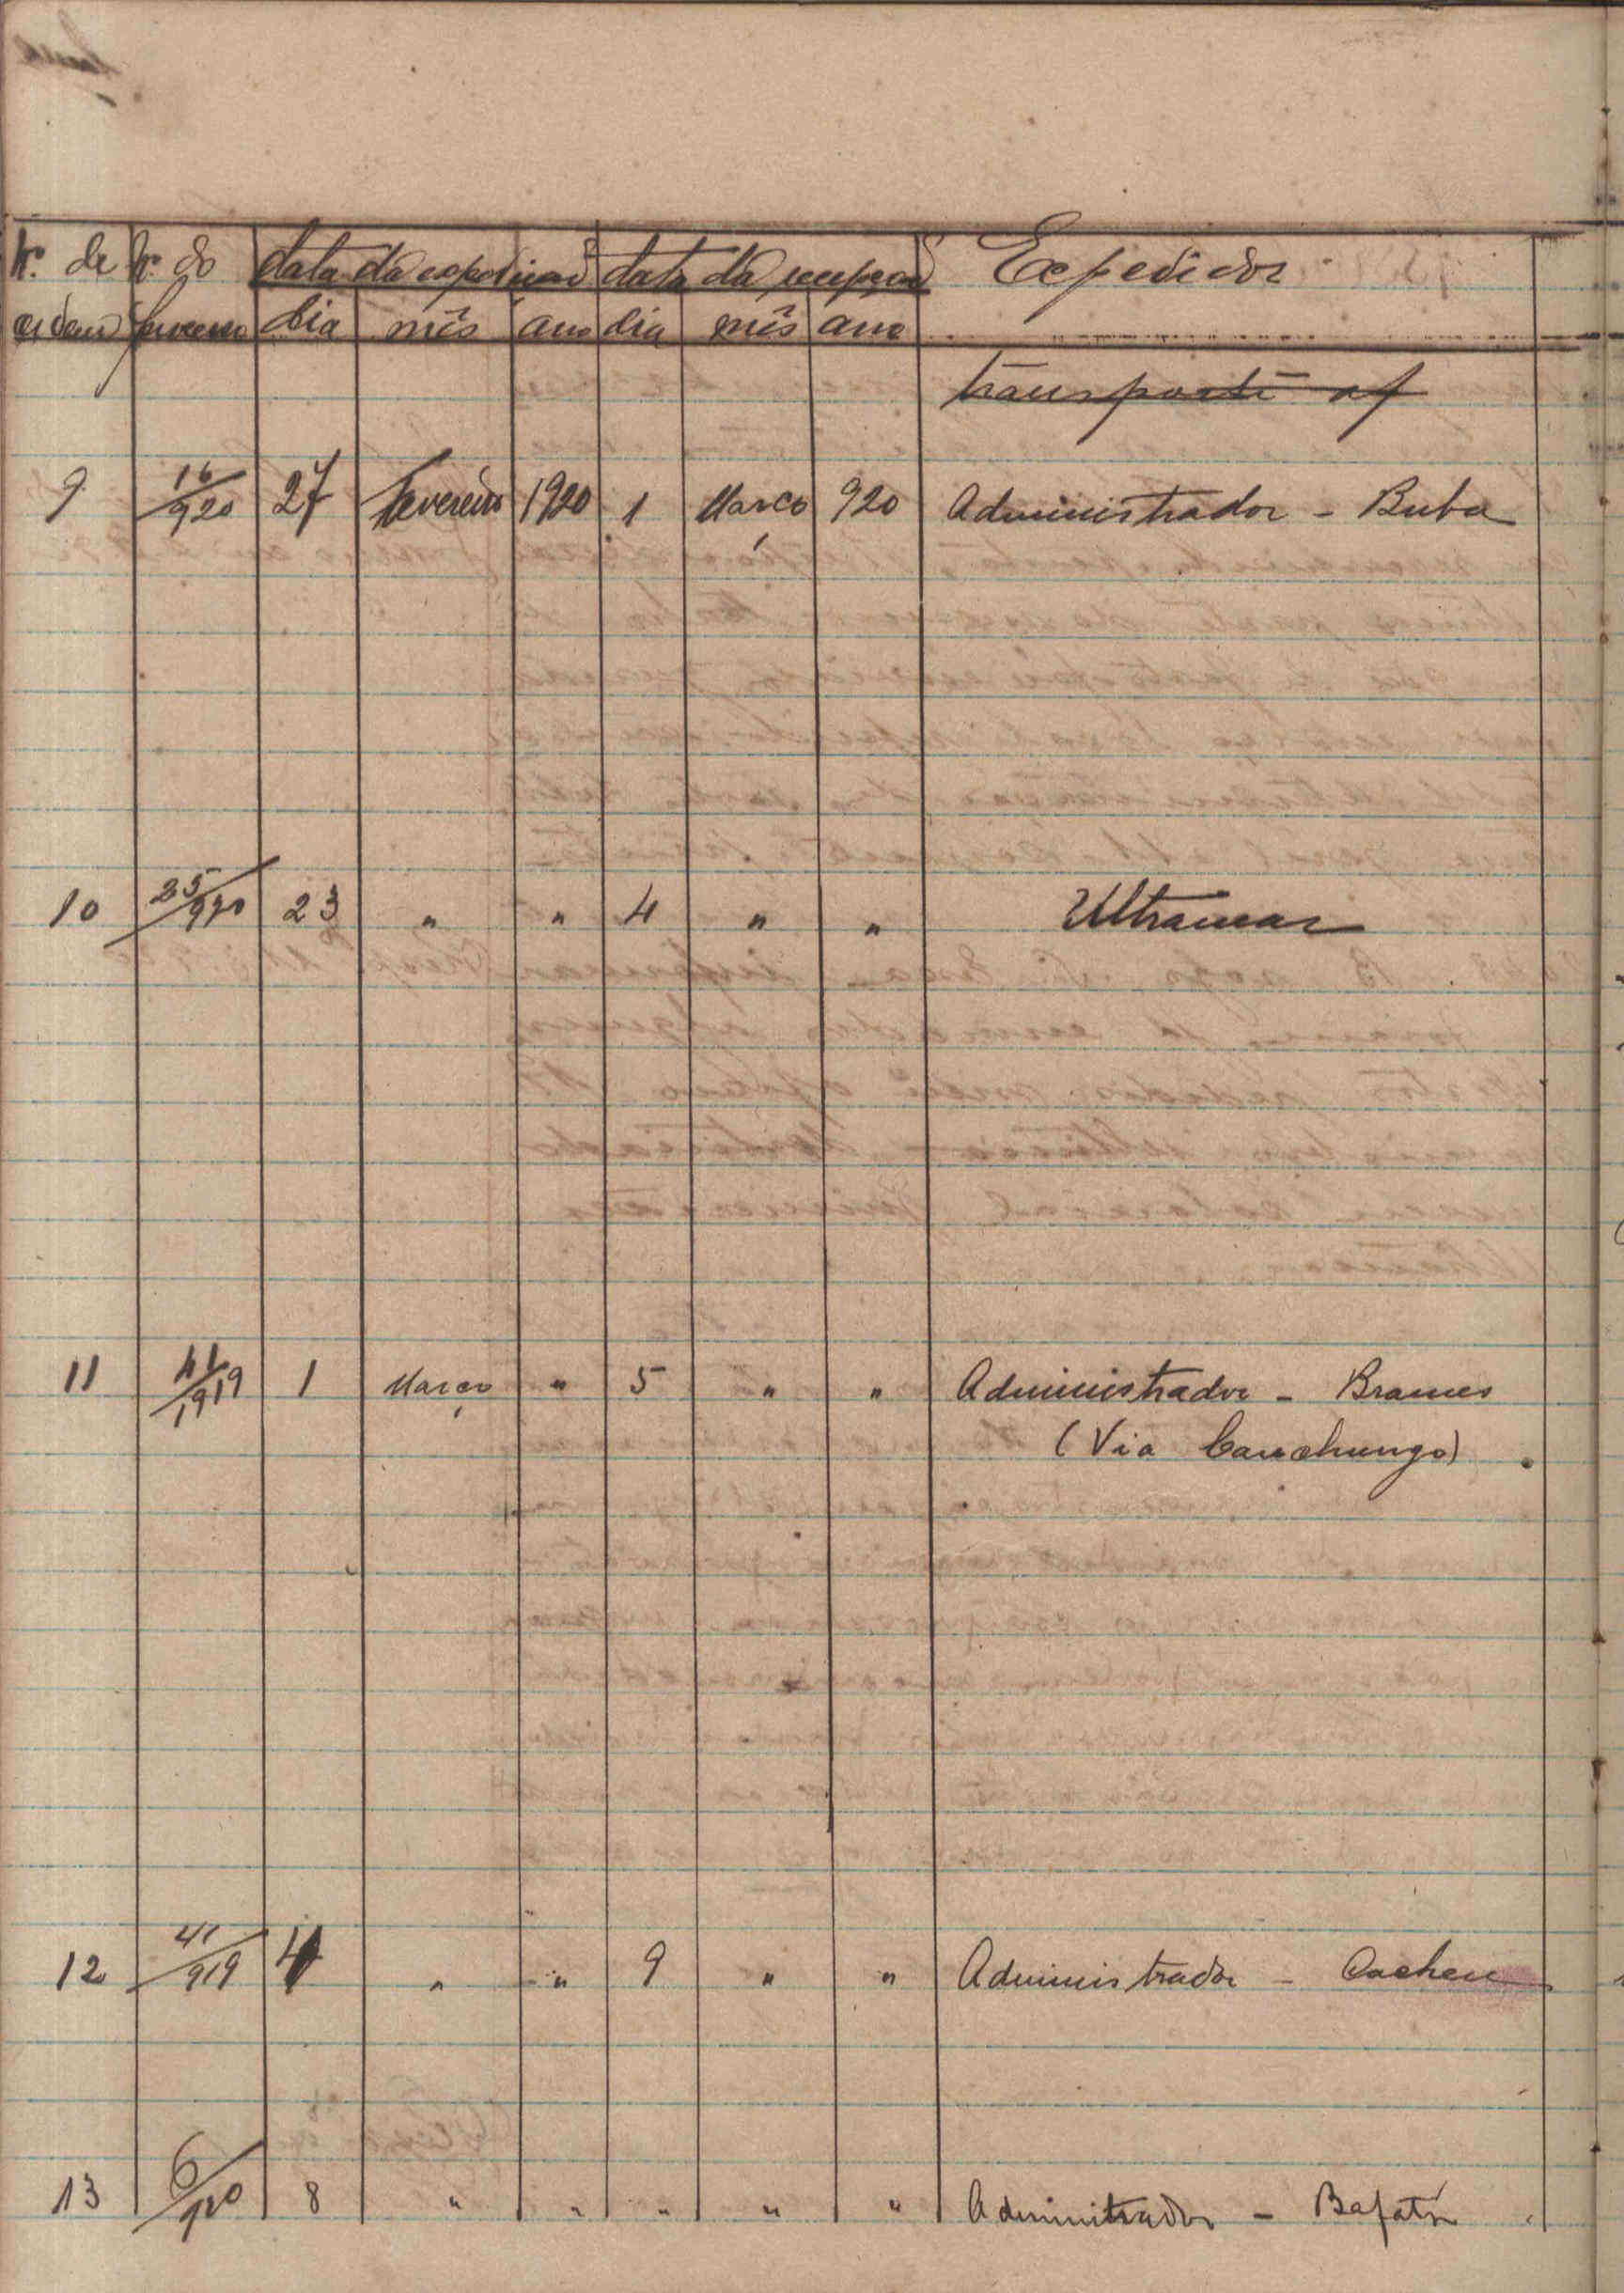 Nr. de Nr. do data da expedicaõ data da recepçaõ Expedidor
ordem processo dia mês ano dia mês ano
transporte
9 16/920 27 Fevereiro 1920 1 Março 920 Administrador - Buba
10 25/920 23 " " 4 " " Ultramar
11 41/1919 1 Março " 5 " " Administrador - Brames
(Via Canchungo)
12 41/919 4 " " 9 " " Administrador - Cacheu
13 6/920 8 " " " " " Adminitrador - Bafatá